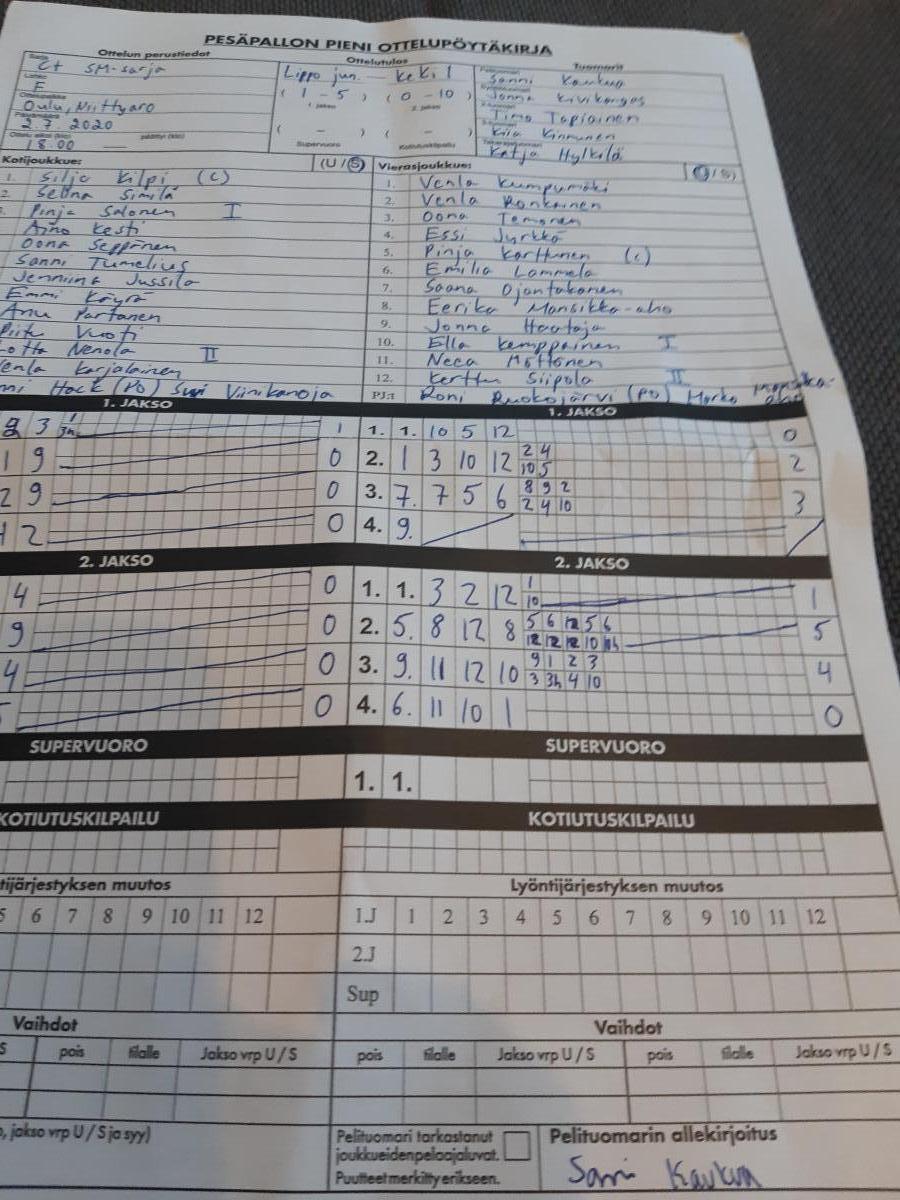 PESÄPALLON PIENI OTTELUPÖYTÄKIRJA
Ottelun perustiedot
Ottelutulos
Tuomarit
Sarja
C+ SM-sarja
Lohko
F
Ottelupaikka
Oulu, Niittyaro
Päivämäärä
2.7.2020
Ottelu alkoi (klo)
päättyi (klo)
18.00
Lippo jun. — KeKi 1
( 1 - 5 ) ( 0 - 10 )
1. jakso 2. jakso
( - ) ( - )
Supervuoro Kotiutuskilpailu
Sanni Kaukua
Jonna Kivikangas
Timo Tapiainen
Kiia Kinnunen
Katja Hylkilä
Kotijoukkue: (U / S)
1. Silja Kilpi (c)
2. Selina Similä
Pinja Salonen I
Aino Kesti
Oona Seppänen
Sanni Tumelius
Jenniina Jussila
Emmi Käyrä
Anu Partanen
Piitu Vuoti
Lotta Nenola II
Venla Karjalainen
nni Hock (PO) Suvi Viinikanoja
Vierasjoukkue: (U / S)
1. Venla Kumpumäki
2. Venla Ronkainen
3. Oona Temonen
4. Essi Jyrkkä
5. Pinja Karttunen (c)
6. Emilia Lammela
7. Saana Ojantakanen
8. Eerika Mansikka-aho
9. Jonna Haataja
10. Ella Kemppainen I
11. Neea Möttönen
12. Kerttu Siipola II
PJ:t Roni Ruokojärvi (PO) Marko Mansikka-aho
1. JAKSO
3 1
1 9 0
2 9 0
2 0
1. JAKSO
1. 1. 10 5 12 0
2. 1 3 10 12 2 4 2
10 5
3. 7. 7 5 6 8 9 2 3
2 4 10
4. 9.
2. JAKSO
4 0
9 0
4 0
0
2. JAKSO
1. 1. 3 2 12 1 1
10
2. 5. 8 12 8 5 6 12 5 6 5
12 12 12 10
3. 9. 11 12 10 9 1 2 3 4
3 3h 4 10
4. 6. 11 10 1 0
SUPERVUORO
SUPERVUORO
1. 1.
KOTIUTUSKILPAILU
KOTIUTUSKILPAILU
tijärjestyksen muutos
5 6 7 8 9 10 11 12
Lyöntijärjestyksen muutos
1.J 1 2 3 4 5 6 7 8 9 10 11 12
2.J
Sup
Vaihdot
S pois tilalle Jakso vrp U / S
Vaihdot
pois tilalle Jakso vrp U / S pois tilalle Jakso vrp U / S
, jakso vrp U / S ja syy)
Pelituomari tarkastanut
joukkueiden pelaajaluvat.
Puutteet merkitty erikseen.
Pelituomarin allekirjoitus
Sanni Kaukua